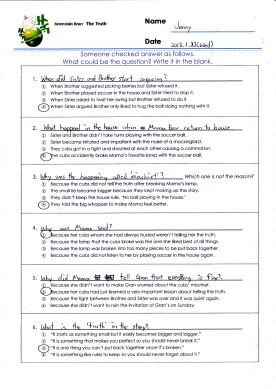 Berenstain Bear The Truth
Name Jenny
Date 2013.1.23(Wed)
Someone checked answer as follows.
What could be the question? Write it in the blank.
1. When did Sister and Brother start arguing?
① When Brother suggested picking berries but Sister refused it.
② When Brother played soccer in the house and Sister tried to stop it.
③ When Sister asked to twist her swing but Brother refused to do it.
④ When Sister argued Brother and tried to hug the ball doing nothing with it.
2. What happend in the house when Mama Bear return to house
① Sister and Brother didn't take turns playing with the soccer ball.
② Sister became irritated and impatient with the noise of a mockingbird.
③ They cubs got in a fight and shouted at each other causing a commotion.
④ The cubs accidently broke Mama's favorite lamp with the soccer ball.
3. Why was the happening called Which one is not the reason?
① Because the cubs did not tell the truth after breaking Mama's lamp.
② The small lie became bigger because they kept making up the story.
③ They didn't keep the house rule, "No ball playing in the house."
④ They told the big whopper to make Mama feel better.
4. Why was Mama sad?
① Because her cubs whom she had always trusted weren't telling her the truth.
② Because the lamp that the cubs broke was the one she liked best of all things.
③ Because the lamp was broken into too many pieces to be put back together.
④ Because the cubs did not listen to her by playing soccer in the house again.
5. Why did Mama tell Gran that everything is fine?
① Because she didn't want to make Gran worried about the cubs' mischief.
② Because her cubs had just learned a very important lesson about telling the truth.
③ Because the fight between Brother and Sister was over and it was quiet again.
④ Because she didn't want to ruin the invitation of Gran's on Sunday.
6. What is the "truth" in the story?
① "It starts as something small but it easily becomes bigger and bigger."
② "It is something that makes you perfect so you should never break it."
③ "It is one thing you can't put back together once it's broken."
④ "It is something like rules to keep so you should never forget about it."